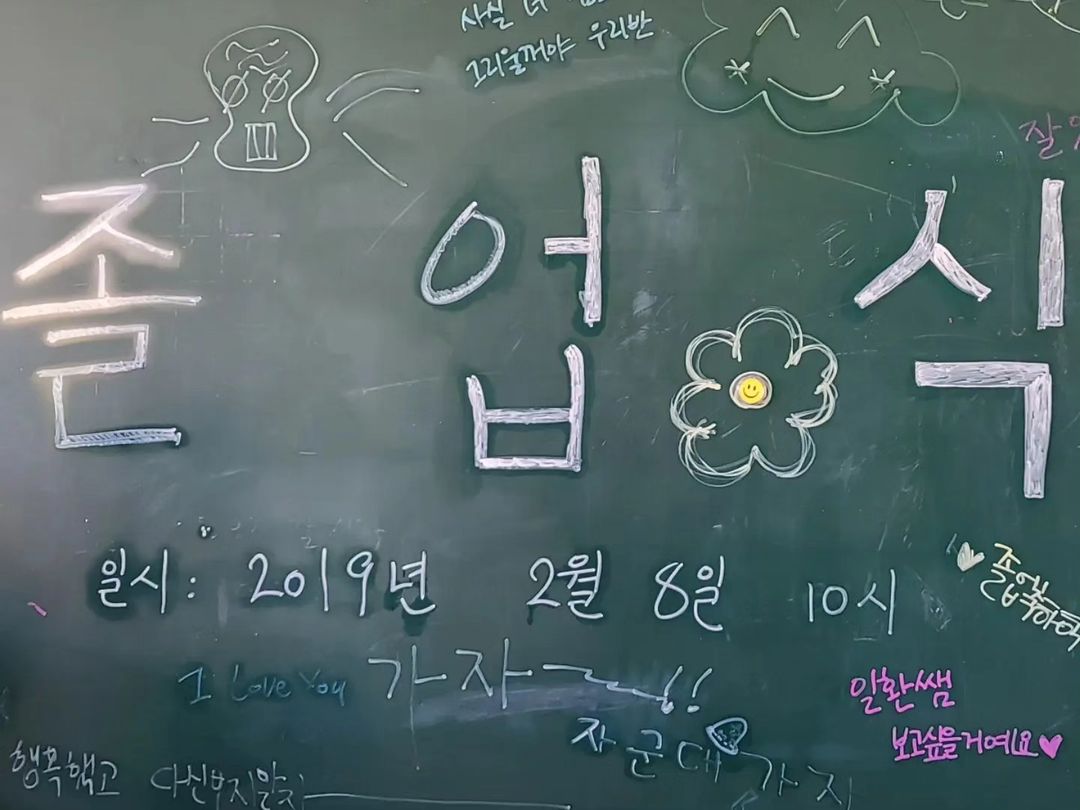 사실 너
그리울꺼야 우리반
졸업식
일시: 2019년 2월 8일 10시
졸업축하해
I Love You 가자~!!
일환쌤
보고싶을거예요♥
자 군대 가자
행복했고 다신보지말자